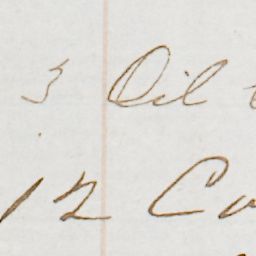 3 Oil
12 Co